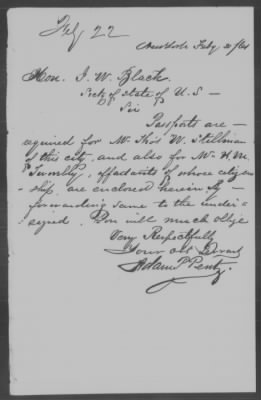 Feby 22
New York Feby 20/61
Hon. J. W. Black.
Secty of State of U.S —
Sir
Passports are —
required for Mr Thos W. Stillman
of this city, and also for Mr H. M.
affidavits of whose citizen
ship are enclosed herein. By —
forwarding same to the under
signed. You will much oblige
Very Respectfully
Your Obt Servant
Adam P Pentz.